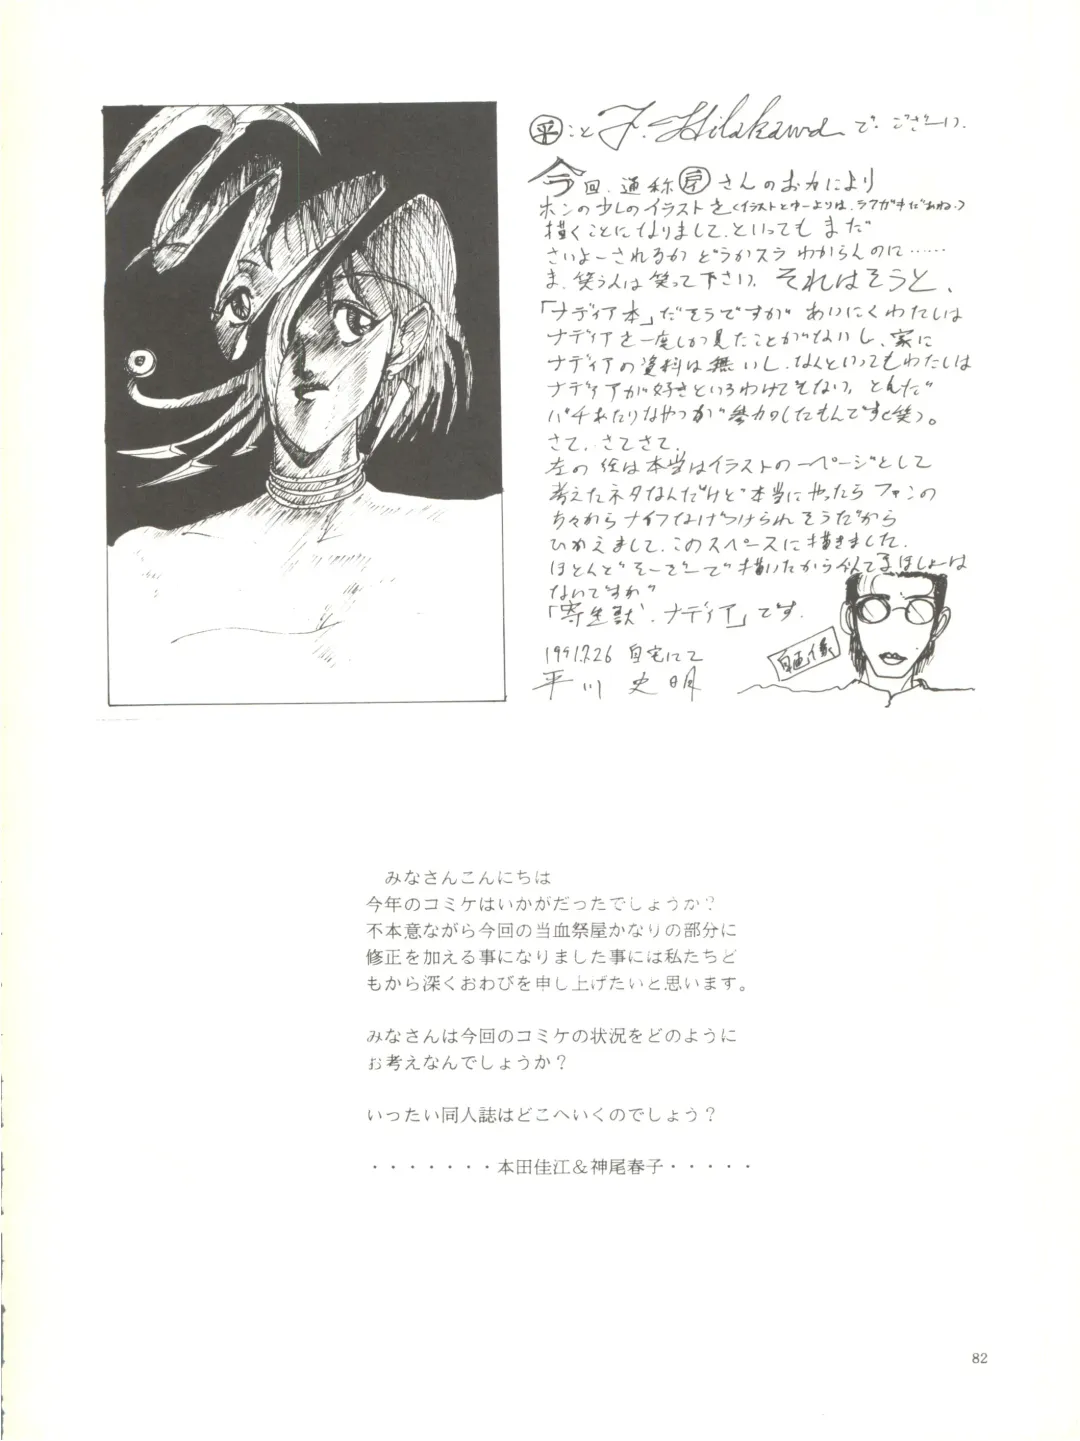 ㊤こと F. Hilakawa で ござーい.
今回、通称 さんのお力により
ホンの少しのイラストを(イラストとゆーよりは、ラクガキだあね.)
描くことになりまして、といっても まだ
さいよーされるか どうかスラ わからんのに……
ま、笑う人は笑って下さい。それはそうと、
「ナディア本」だそうですが あいにくわたしは
ナディアを一度しか見たことがないし、家に
ナディアの資料は無いし、なんといってもわたしは
ナディアが好きというわけでもない。とんだ
バチあたりなやつが参加したもんです(笑)。
さて、さてさて、
左の絵は本当はイラストの一ページとして
考えたネタなんだけど本当にやったらファンの
方々からナイフなげつけられそうだから
ひかえまして、このスペースに描きました.
ほとんどそーぞーで描いたから似てましょーは
ないですが
「寄生獣、ナディア」です.
1991.7.26 自宅にて
平川史明
自画像
みなさんこんにちは
今年のコミケはいかがだったでしょうか？
不本意ながら今回の当血祭屋かなりの部分に
修正を加える事になりました事には私たちど
もから深くおわびを申し上げたいと思います。
みなさんは今回のコミケの状況をどのように
お考えなんでしょうか？
いったい同人誌はどこへいくのでしょう？
・・・・・・・本田佳江＆神尾春子・・・・・
82